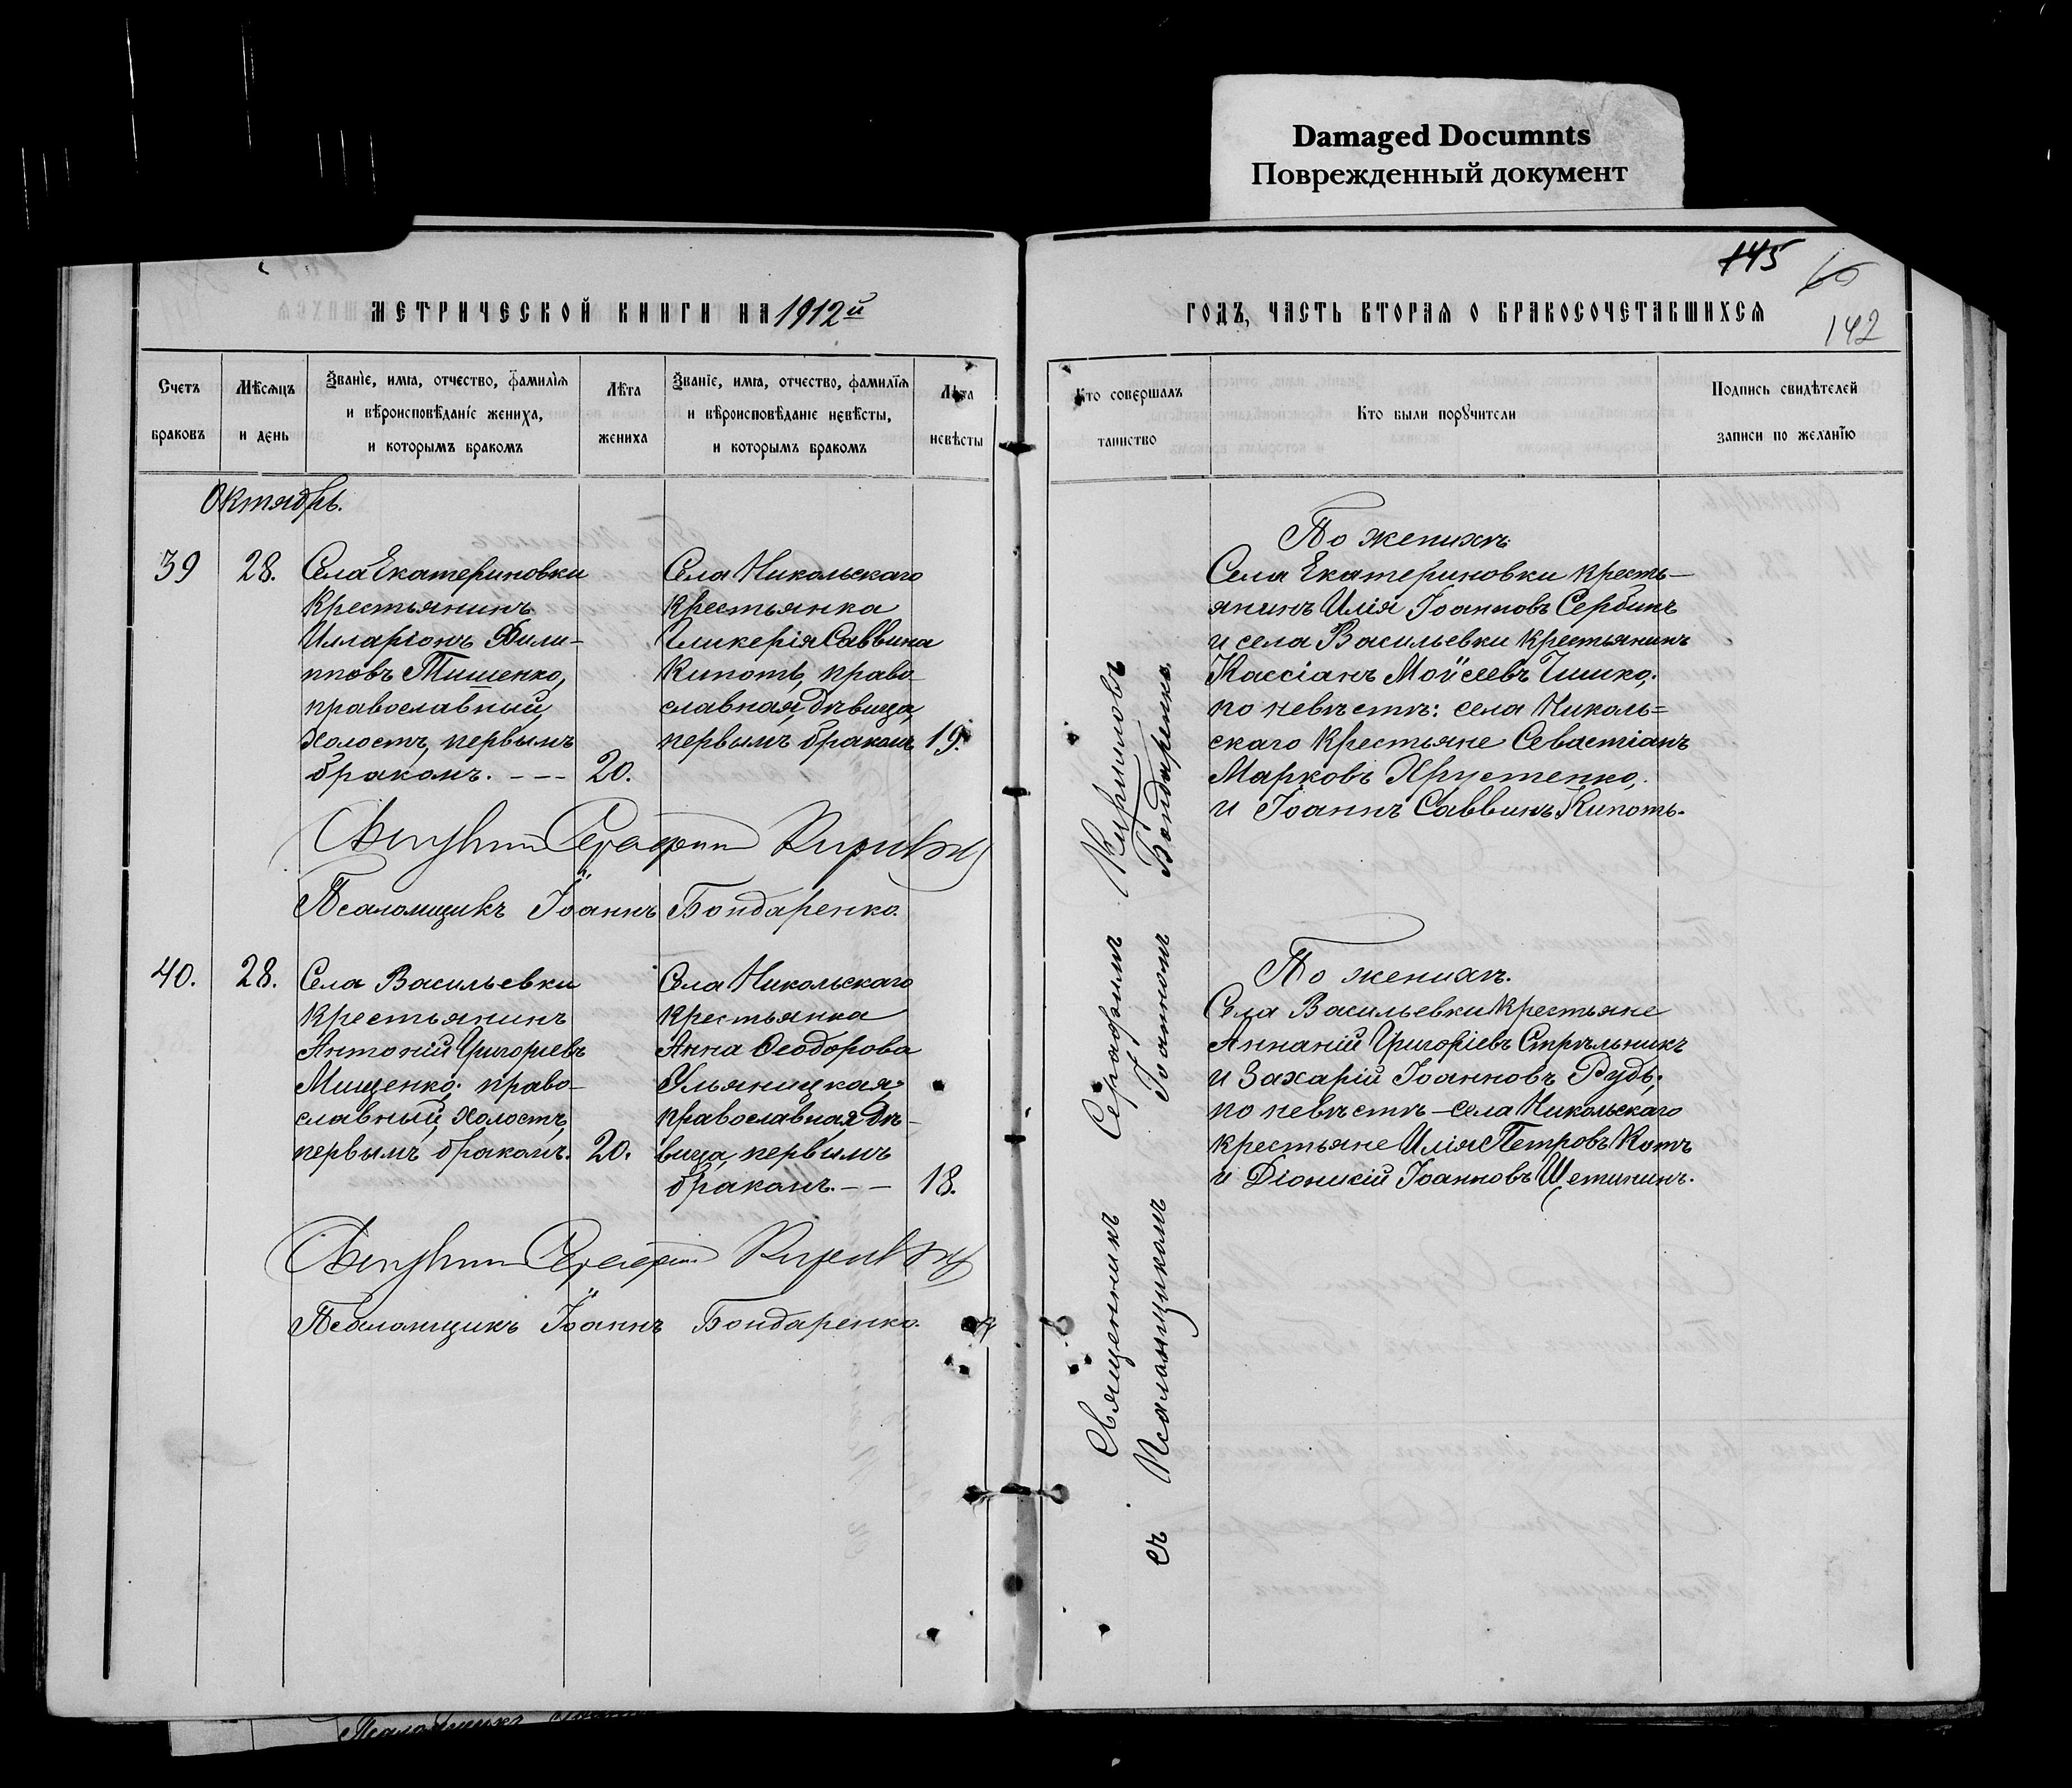 Damaged Documnts
Поврежденный документ
145
60
142
МЕТРИЧЕСКОЙ КНИГИ НА 1912й
ГОДЪ, ЧАСТЬ ВТОРАЯ О БРАКОСОЧЕТАВШИХСЯ
Счетъ
браковъ
Мѣсяцъ
и день
Званіе, имя, отчество, фамилія
и вѣроисповѣданіе жениха,
и которымъ бракомъ
Лѣта
жениха
Званіе, имя, отчество, фамилія
и вѣроисповѣданіе невѣсты,
и которымъ бракомъ
Лѣта
невѣсты
Кто совершалъ
таинство
Кто были поручители
Подпись свидѣтелей
записи по желанію
Октябрь.
39
28.
Села Екатериновки
крестьянинъ
Илларіонъ Фили-
пповъ Тишенко,
православный,
холостъ, первымъ
бракомъ. - - -
20.
Села Никольскаго
крестьянка
Гликерія Саввина
Кипоть, право-
славная, дѣвица,
первымъ бракомъ
19.
Священникъ Серафимъ Кириловъ
Псаломщикъ Іоаннъ Бондаренко.
40.
28.
Села Васильевки
крестьянинъ
Антоній Григоріевъ
Мищенко, право-
славный, холостъ,
первымъ бракомъ.
20.
Села Никольскаго
крестьянка
Анна Ѳеодорова
Ульяницкая,
православная, дѣ-
вица, первымъ
бракомъ. - -
18.
Священникъ Серафимъ Кириловъ
Псаломщикъ Іоаннъ Бондаренко.
Священникъ Серафимъ Кириловъ
съ Псаломщикомъ Іоанномъ Бондаренко.
По женихѣ
Села Екатериновки кресть-
янинъ Илія Іоанновъ Сербинъ
и села Васильевки крестьянинъ
Кассіанъ Моѵсеевъ Чишко;
по невѣстѣ: села Николь=
скаго крестьяне Севастіанъ
Марковъ Хрустенко,
и Іоаннъ Саввинъ Кипоть.
По женихѣ.
Села Васильевки крестьяне
Ананій Григоріевъ Стрѣльникъ
и Захарій Іоанновъ Рудь;
по невѣстѣ - села Никольскаго
крестьяне Илія Петровъ Котъ
и Діонисій Іоанновъ Щетининъ.
Псаломщикъ